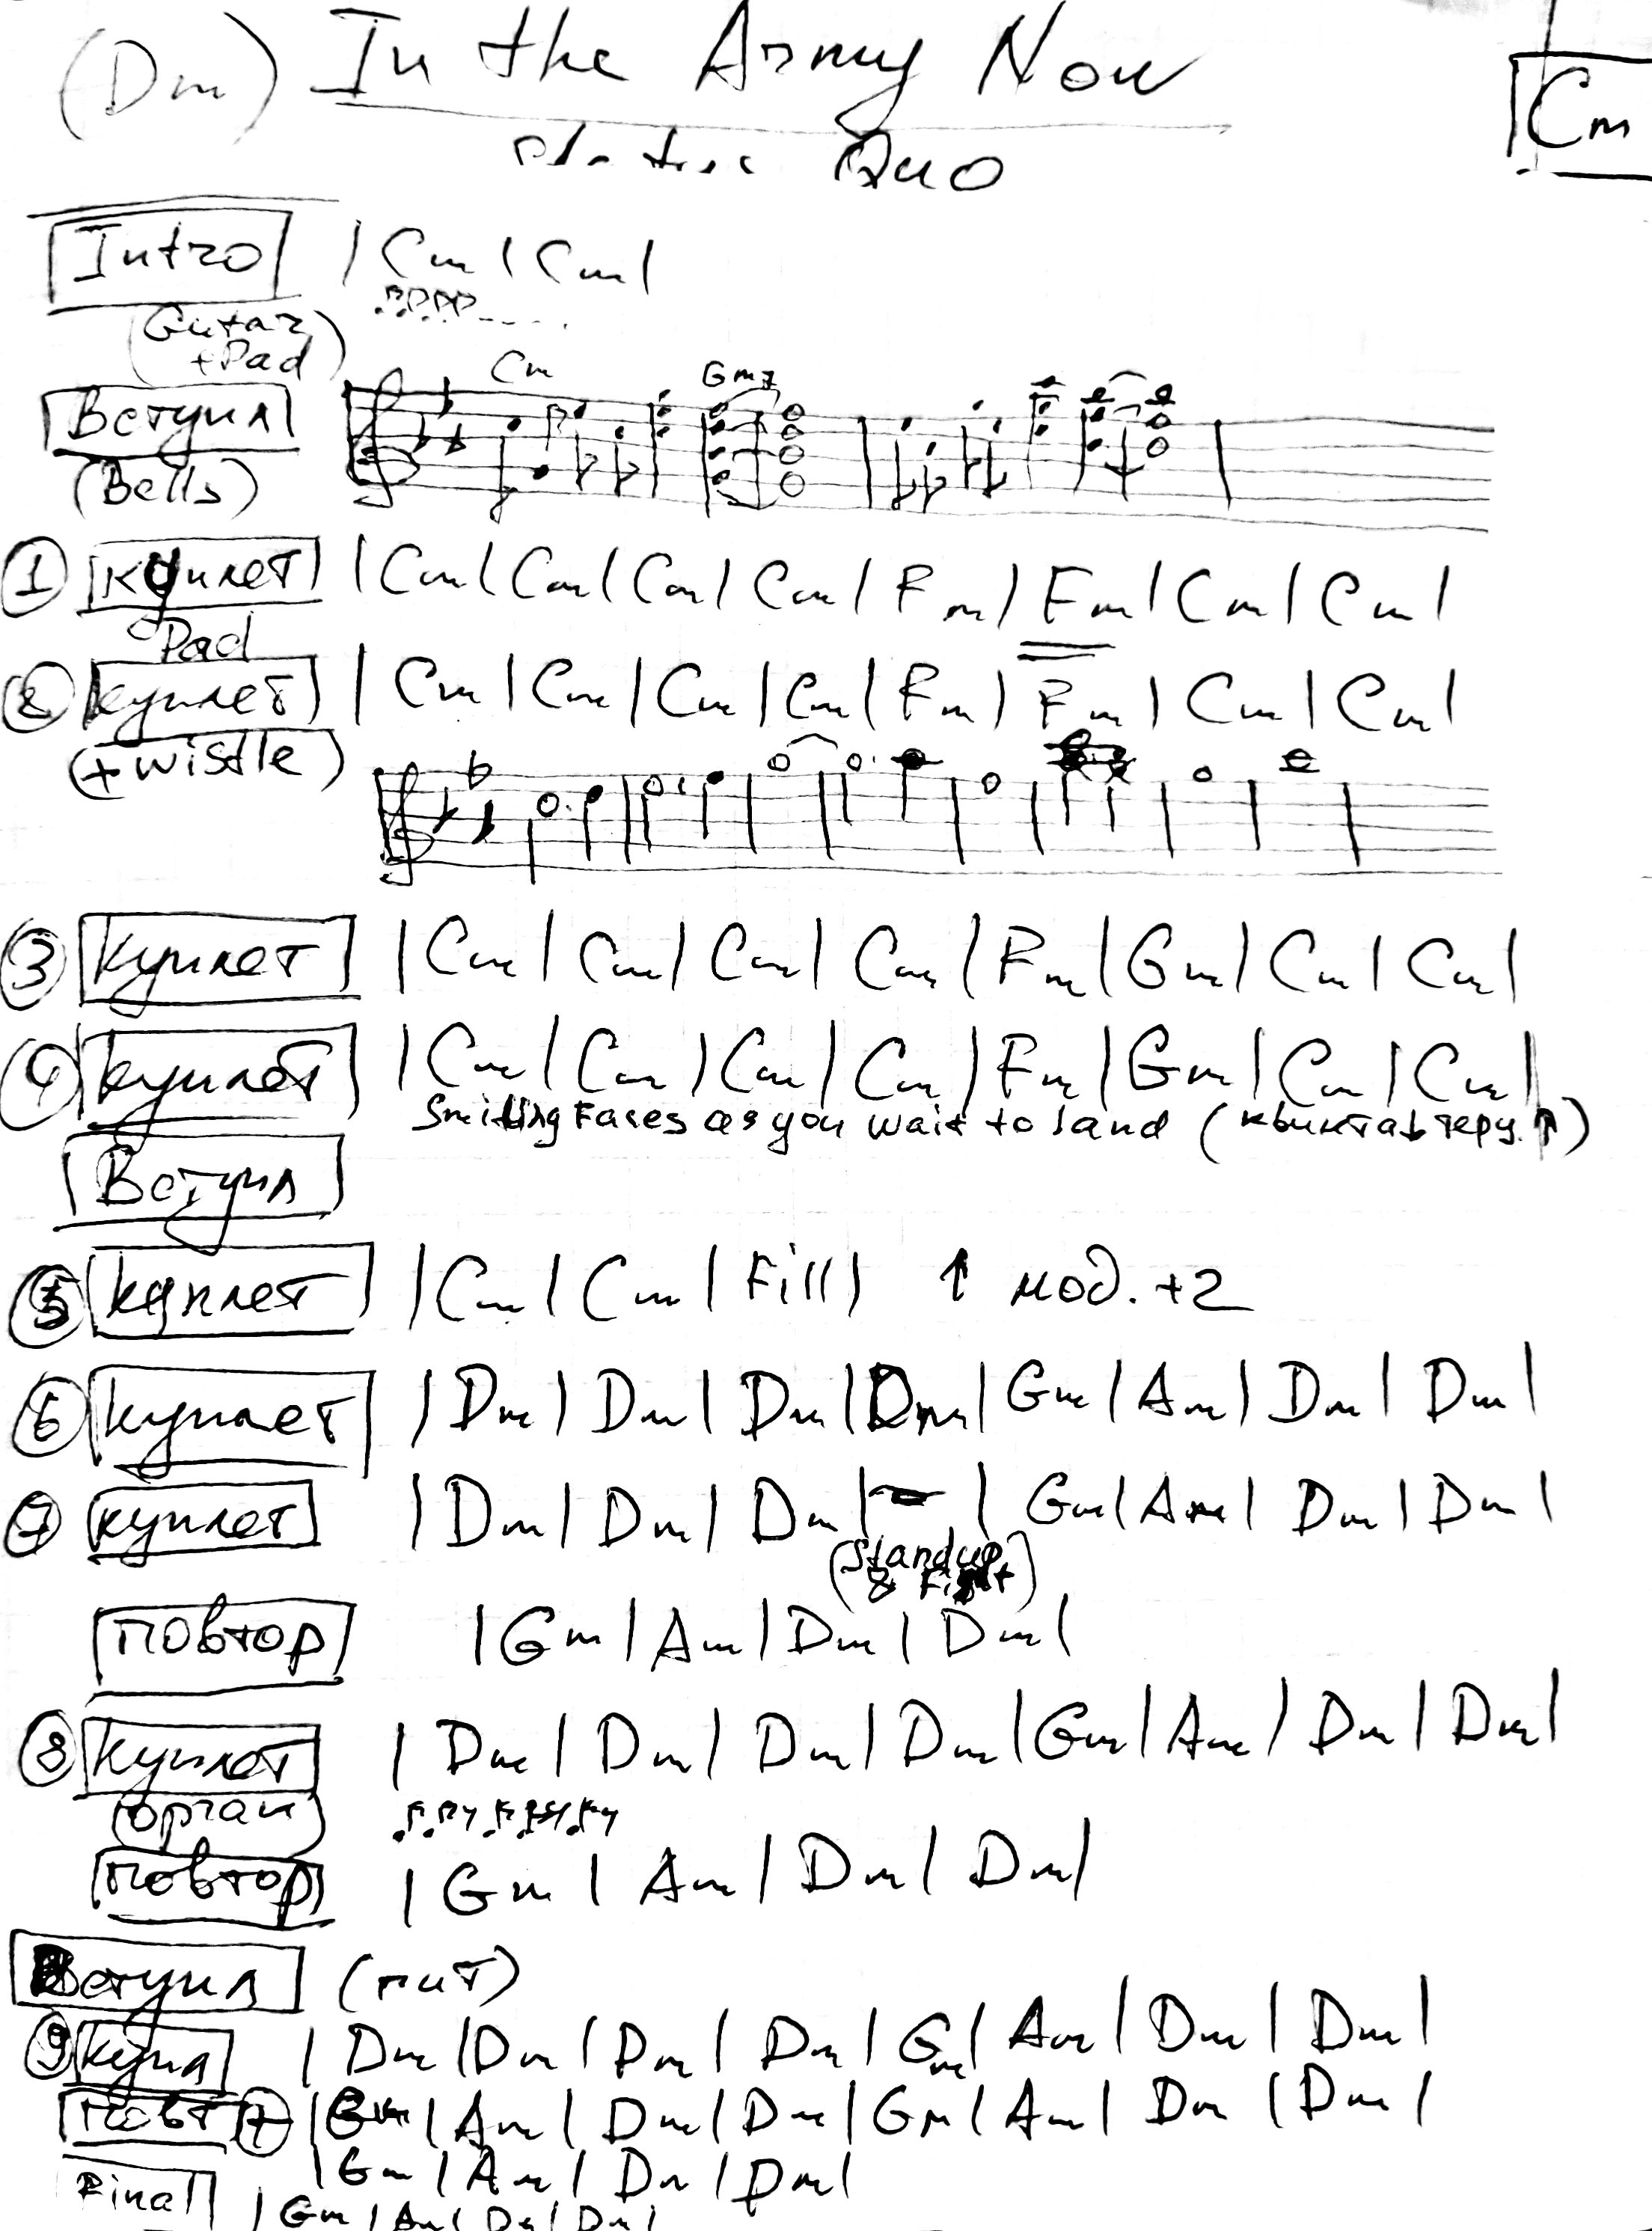 (Dm) In the Army Now
Cm
Quo
Intro | Cm | Cm |
(Guitar
+Pad)
Cm Gm7
Вступл
(Bells)
1 куплет | Cm | Cm | Cm | Cm | Fm | Fm | Cm | Cm |
Pad
2 куплет | Cm | Cm | Cm | Cm | Fm | Fm | Cm | Cm |
(+ wistle)
3 Куплет | Cm | Cm | Cm | Cm | Fm | Gm | Cm | Cm |
4 куплет | Cm | Cm | Cm | Cm | Fm | Gm | Cm | Cm |
Smiling Faces as you wait to land (
Вступл
5 куплет | Cm | Cm | Fill | ↑ мод. +2
6 куплет | Dm | Dm | Dm | Dm | Gm | Am | Dm | Dm |
7 куплет | Dm | Dm | Dm | – | Gm | Am | Dm | Dm |
(Stand up
& Fight)
Повтор | Gm | Am | Dm | Dm |
8 Куплет | Dm | Dm | Dm | Dm | Gm | Am | Dm | Dm |
(орган)
Повтор | Gm | Am | Dm | Dm |
Вступл (гит)
9 Купл | Dm | Dm | Dm | Dm | Gm | Am | Dm | Dm |
Повт | Gm | Am | Dm | Dm | Gm | Am | Dm | Dm |
| Gm | Am | Dm | Dm |
Final | Gm | Am | Dm | Dm |